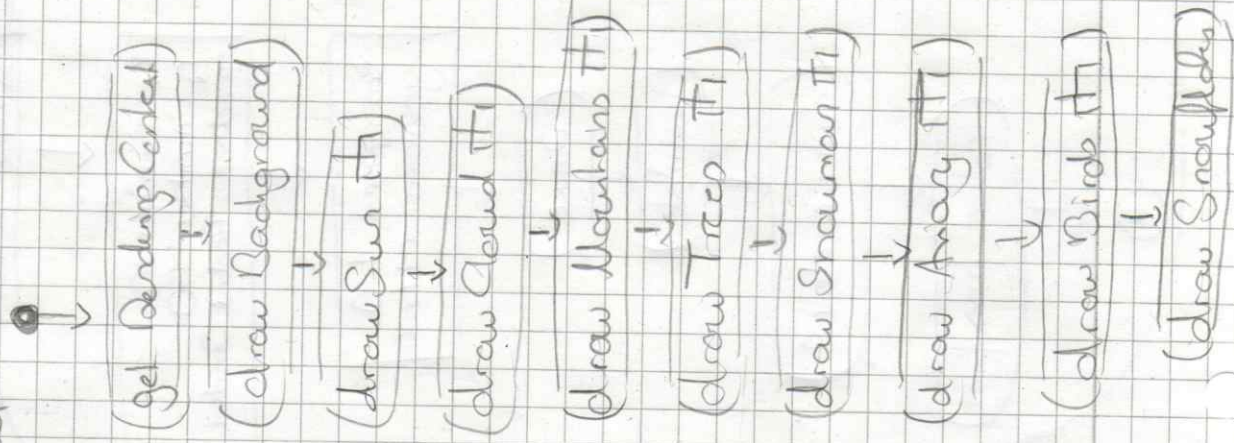 get Rendering Context
draw Background
draw Sun #1
draw Cloud #1
draw Mountains #1
draw Trees #1
draw Snowman #1
draw Aviary #1
draw Birds #1
draw Snowflakes